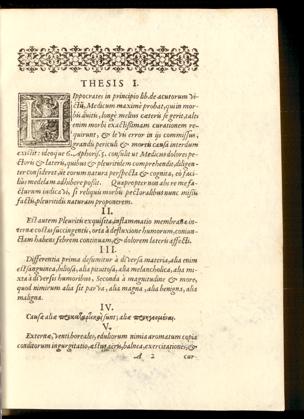 THESIS I.
HIppocrates in principio lib. de acutorum vi-
ctu, Medicum maximè probat, qui in mor-
bis acutis, longè melius cæteris se gerit, tales
enim morbi exactissimam curationem re-
quirunt, & levis error in ijs commissus,
grandis periculi & mortis causa interdum
existit: ideoque 6. Aphoris. 5. consulit ut Medicus dolores pe-
ctoris & lateris, quibus & pleuritidem comprehendit, diligen-
ter consideret, ut eorum natura perspecta & cognita, eò fa-
cilius medelam adhibere possit. Quapropter non abs re me fa-
cturum judicavi, si reliquis morbis pectoralibus nunc missis
factis, pleuritidis naturam proponerem.
II.
Est autem Pleuritis exquisita, inflammatio membranæ in-
ternæ costas succingentis, orta à defluxione humorum, conjun-
ctam habens febrem continuam, & dolorem lateris affecti.
III.
Differentia prima desumitur à diversa materia, alia enim
est sanguinea, biliosa, alia pituitosa, alia melancholica, alia mi-
xta à diversis humoribus. Secunda à magnitudine & more,
quod nimirum alia sit parva, alia magna, alia benigna, alia
maligna.
IV.
Causæ aliæ προκαταρκτικαὶ sunt; aliæ προηγούμεναι.
V.
Externæ, venti boreales, ediliorum nimia aromatum copia
conditorum ingurgitatio, æstus aëris, balnea, exercitationes, &
A 2 cur-